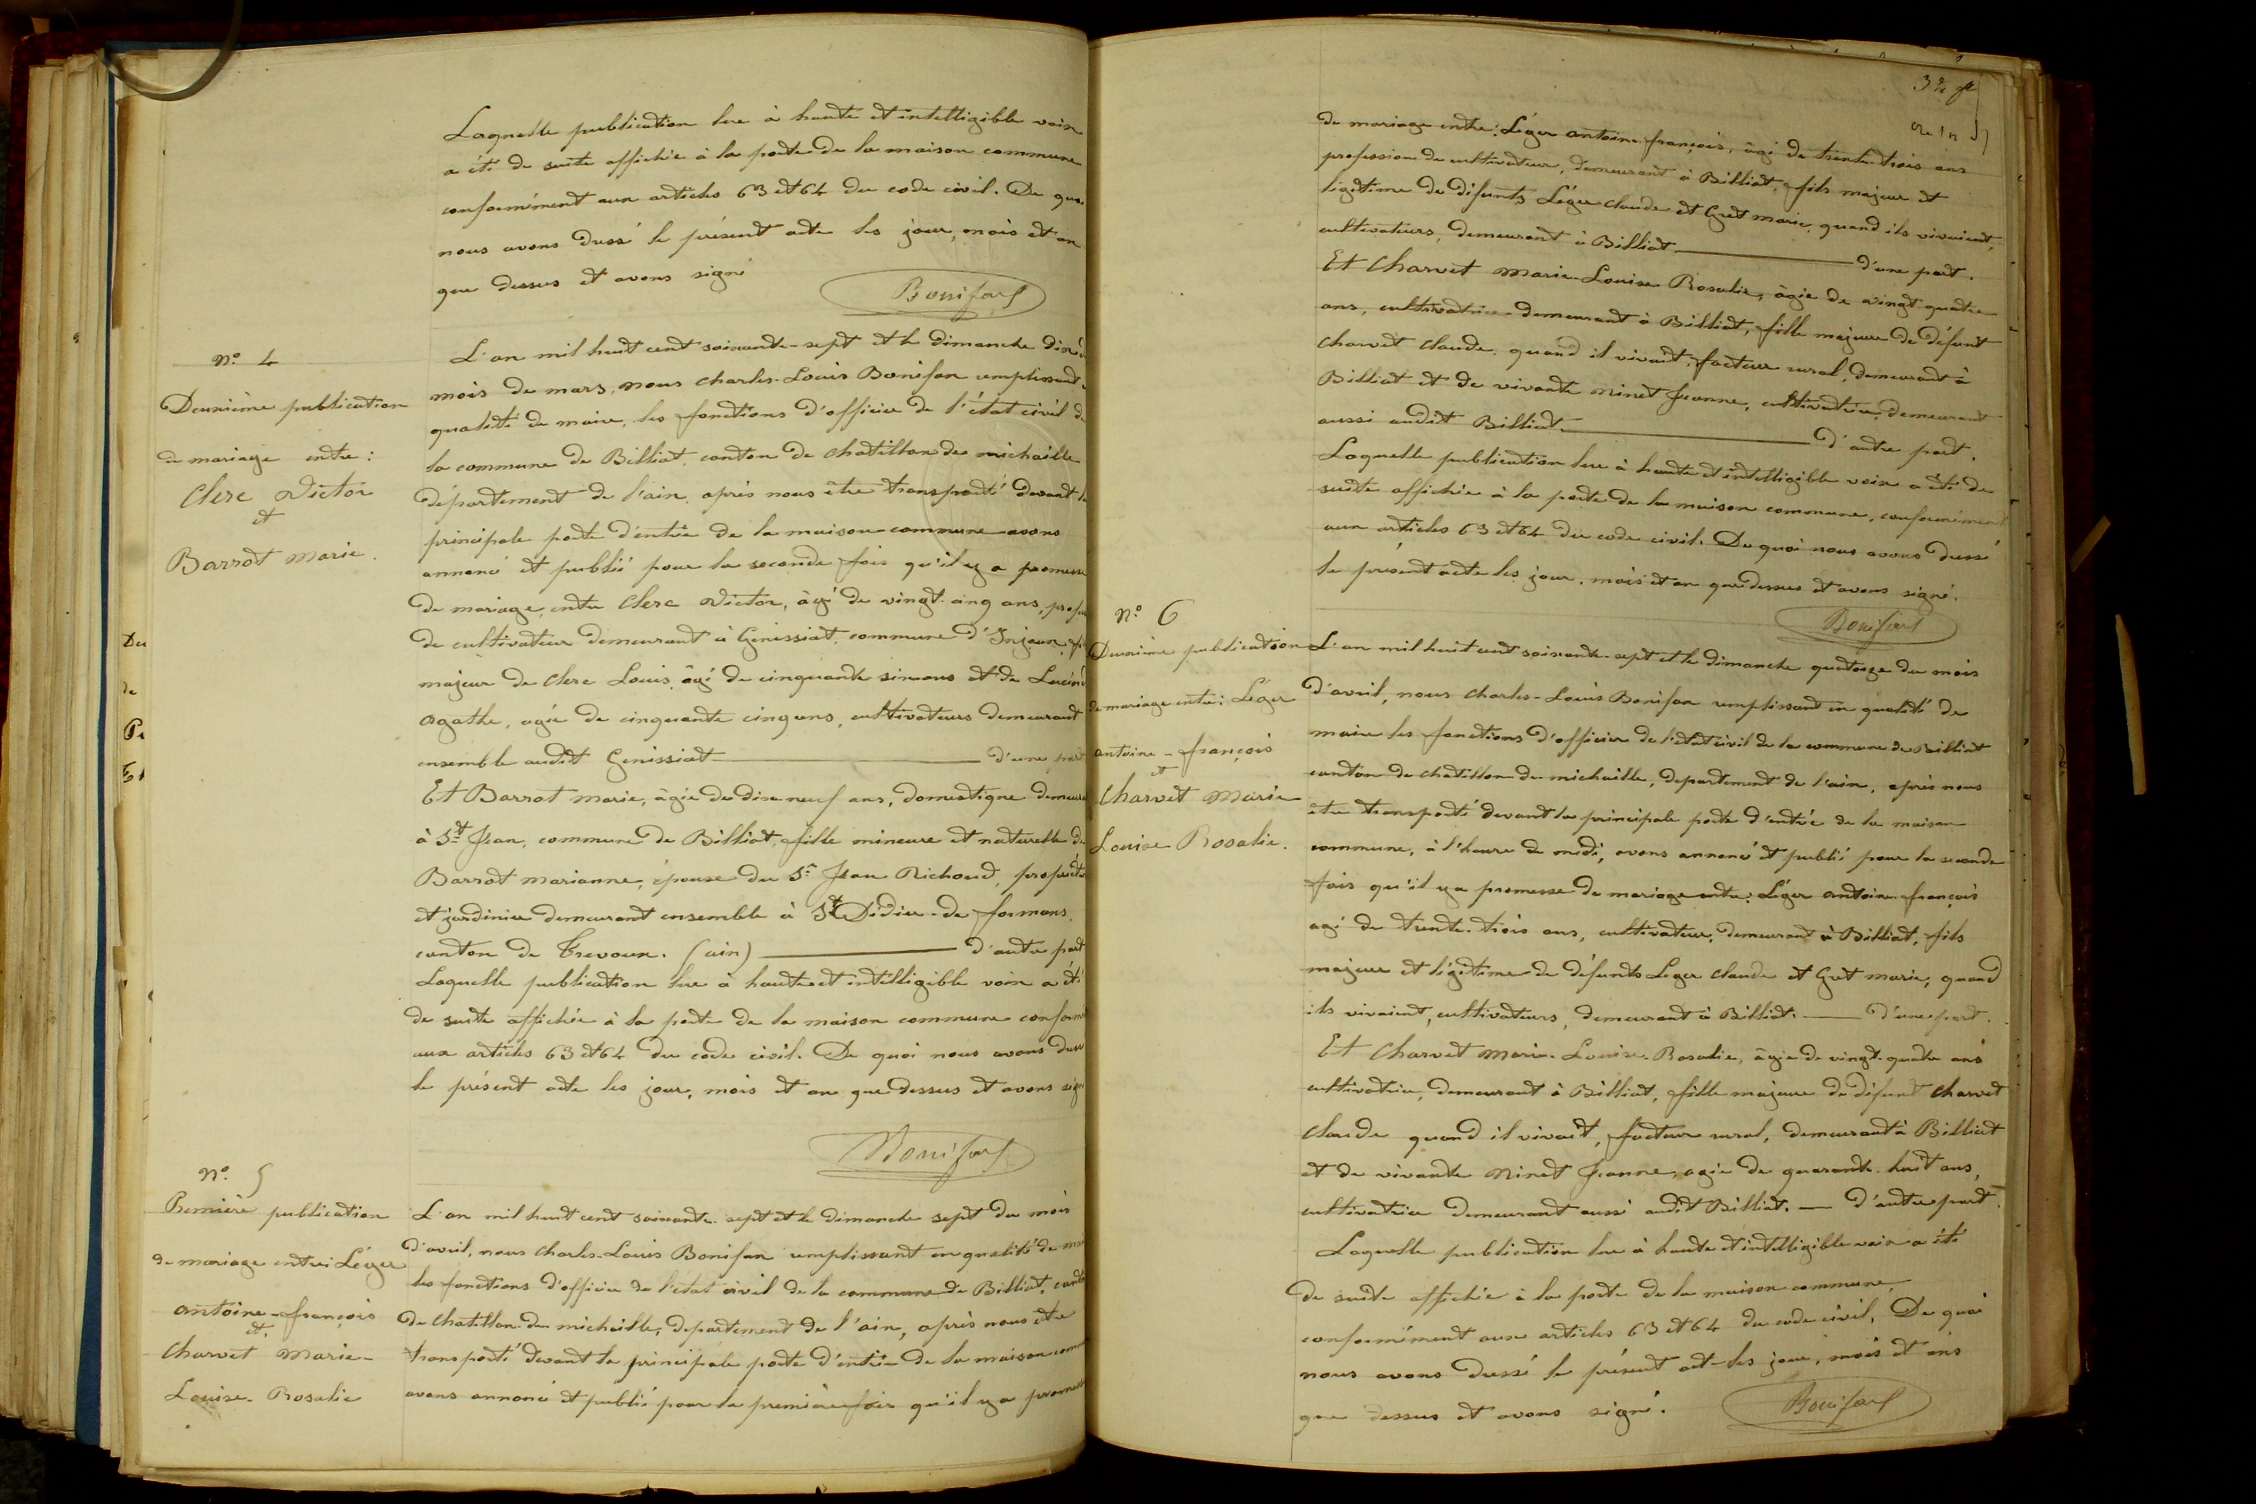 Laquelle publication lue à haute et intelligible voix
a été de suite affichée à la porte de la maison commune
conformément aux articles 63 et 64 du code civil. De quoi
nous avons dressé le présent acte les jour, mois et an
que dessus et avons signé
Bonifax
N° 4
Deuxième publication
de mariage entre :
Clerc Victor
et
Barrot Marie.
L'an mil huit cent soixante-sept et le dimanche dix du
mois de mars, nous Charles-Louis Bonifax remplissant en
qualité de maire, les fonctions d'officier de l'état civil de
la commune de Billiat, canton de Chatillon de michaille
département de l'ain, après nous être transporté devant la
principale porte d'entrée de la maison commune avons
annoncé et publié pour la seconde fois qu'il y a promesse
de mariage entre Clerc Victor, âgé de vingt-cinq ans, profes
de cultivateur demeurant à Genissiat, commune d'Injoux, fi
majeur de Clerc Louis, âgé de cinquante six ans et de
Agathe, agée de cinquante cinq ans, cultivateurs demeurant
ensemble audit Genissiat d'une part
Et Barrot Marie, âgée de dix-neuf ans, domestique demeura
à St Jean, commune de Billiat, fille mineure et naturelle de
Barrot Marianne, épouse du Sr Jean Richoud, propriét
et jardinier demeurant ensemble à St Didier-de formans
canton de Trevoux. (ain) d'autre part
Laquelle publication lue à haute et intelligible voix a été
de suite affichée à la porte de la maison commune conformé
aux articles 63 et 64 du code civil. De quoi nous avons dress
le présent acte les jour, mois et an que dessus et avons signé
Bonifax
N° 5
Première publication
de mariage entre : Léger
Antoine-françois
et
Charvet Marie-
Louise-Rosalie
L'an mil huit cent soixante-sept et le dimanche sept du mois
d'avril, nous Charles-Louis Bonifax remplissant en qualité de mai
les fonctions d'officier de l'état civil de la commune de Billiat, canton
de Chatillon-de michaille, département de l'ain, après nous être
transporté devant la principale porte d'entrée de la maison comm
avons annoncé et publié pour la première fois qu'il y a promesse
32
de mariage entre : Léger Antoine françois, âgé de trente-trois ans
profession de cultivateur, demeurant à Billiat, fils majeur et
légitime de défunts Léger Claude et Gret Marie, quand ils vivaient,
cultivateurs, demeurant à Billiat d'une part.
Et Charvet Marie-Louise-Rosalie, âgée de vingt-quatre
ans, cultivatrice demeurant à Billiat, fille majeure de défunt
Charvet Claude, quand il vivait, facteur rural, demeurant à
Billiat et de vivante Ninet Jeanne, cultivatrice, demeurant
aussi audit Billiat d'autre part.
Laquelle publication lue à haute et intelligible voix a été de
suite affichée à la porte de la maison commune, conformément
aux articles 63 et 64 du code civil. De quoi nous avons dressé
le présent acte les jour, mois et an que dessus et avons signé.
Bonifax
N° 6
Deuxième publication
de mariage entre : Léger
Antoine-françois
et
Charvet Marie
Louise Rosalie.
L'an mil huit cent soixante-sept et le dimanche quatorze du mois
d'avril, nous Charles-Louis Bonifax remplissant en qualité de
maire les fonctions d'officier de l'état civil de la commune de Billiat
canton de Chatillon-de michaille, departement de l'ain, après nous
être transporté devant la principale porte d'entrée de la maison
commune, à l'heure de midi, avons annoncé et publié pour la seconde
fois qu'il y a promesse de mariage entre : Léger Antoine-françois
agé de trente-trois ans, cultivateur, demeurant à Billiat, fils
majeur et légitime de défunts Leger Claude et Gret Marie, quand
ils vivaient, cultivateurs, demeurant à Billiat. d'une part.
Et Charvet Marie-Louise-Rosalie, âgée de vingt-quatre ans
cultivatrice, demeurant à Billiat, fille majeure de défunt Charvet
Claude quand il vivait, facteur rural, demeurant à Billiat
et de vivante Ninet Jeanne, agée de quarante-huit ans,
cultivatrice demeurant aussi audit Billiat. d'autre part.
Laquelle publication lue à haute et intelligible voix a été
de suite affichée à la porte de la maison commune
conformément aux articles 63 et 64 du code civil, De quoi
nous avons dressé le présent acte les jour, mois et ans
que dessus et avons signé.
Bonifax